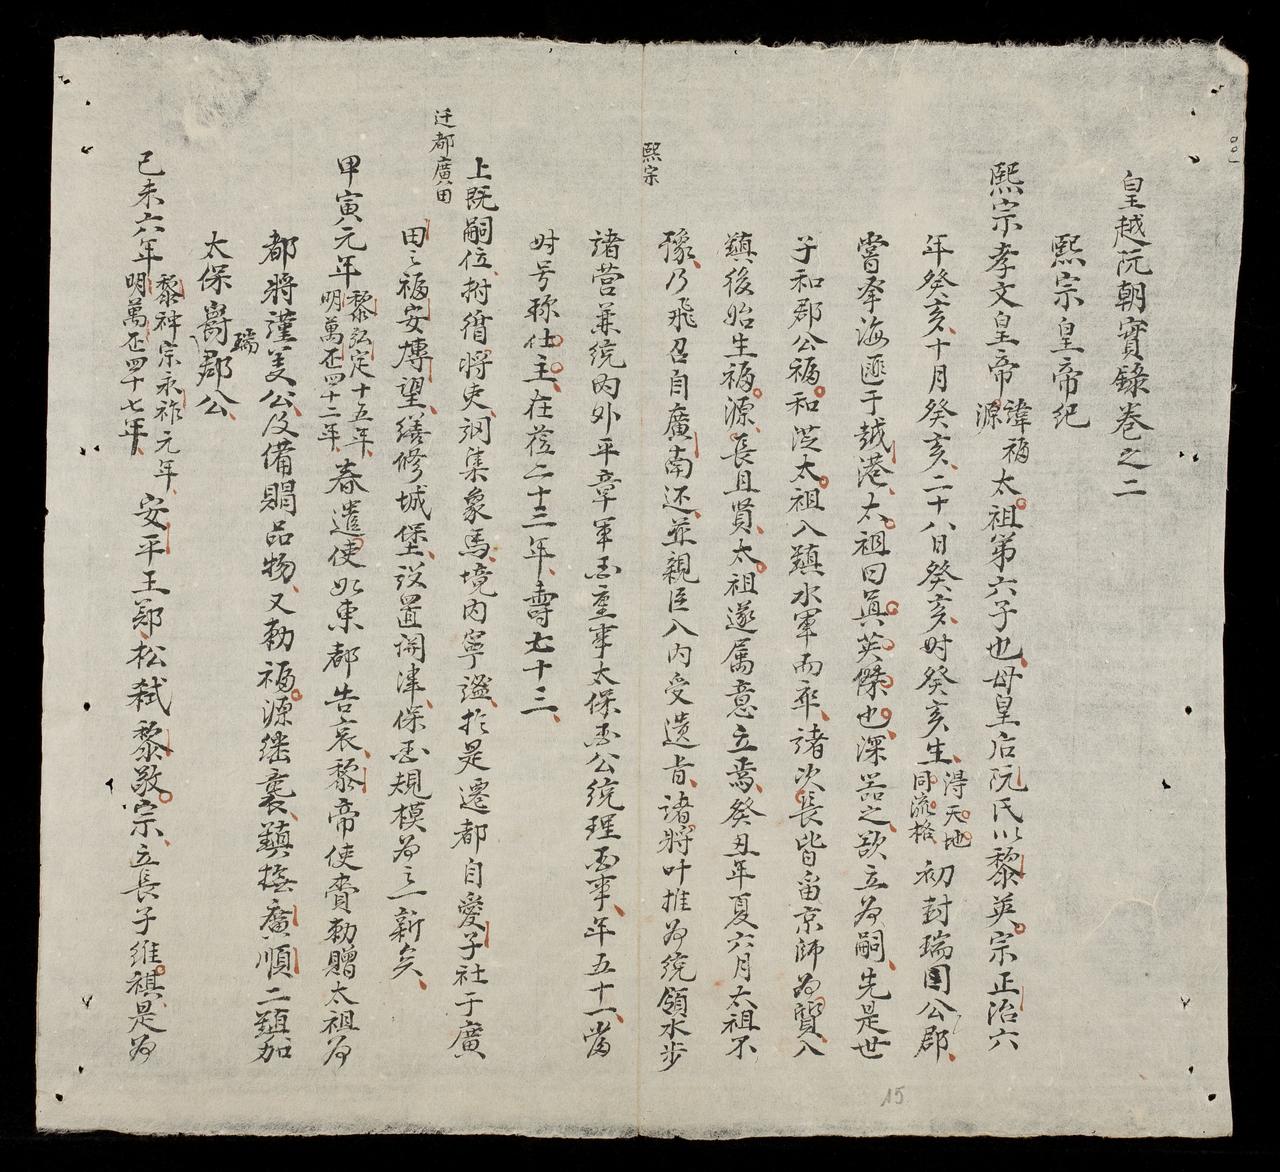 皇越阮朝實錄卷之二
熙宗皇帝紀
熙宗孝文皇帝諱福源太祖第六子也母皇后阮氏以黎英宗正治六
年癸亥十月癸亥二十八日癸亥时癸亥生得天地同流格初封瑞國公郡
嘗挙海匪于越港太祖曰真英傑也深器之欲立为嗣先是世
子和郡公福和從太祖入鎮水軍而卒諸次長皆畄京師为質入
鎮後始生福源長且賢太祖遂属意立焉癸丑年夏六月太祖不
熙宗
豫乃飛召自廣南还並親臣入内受遗旨諸將叶推为統領水步
諸营兼統内外平章軍国重事太保国公統理国事年五十一當
时号称仕主在莅二十三年壽七十三
上既嗣位拊循將吏訓集象馬境内寧謐於是遷都自愛子社于廣
迁都廣田
田之福安慱望繕修城堡設置関津保国規模为之一新矣
甲寅元年黎弘定十五年明萬厯四十二年春遣使如東都告哀黎帝使賚勅贈太祖为
都將謹義公及備賵品物又勅福源継襲鎮撫廣順二鎮加
太保爵郡公
瑞
己未六年黎神宗永祚元年明萬厯四十七年安平王郑松弑黎敬宗立長子維祺是为
15
001